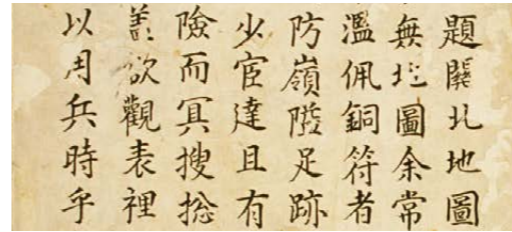 題關北地圖
無北圖余常
濫佩銅符者
防嶺隘足跡
少宦達且有
險而冥搜捴
盖欲觀表裡
以用兵時乎